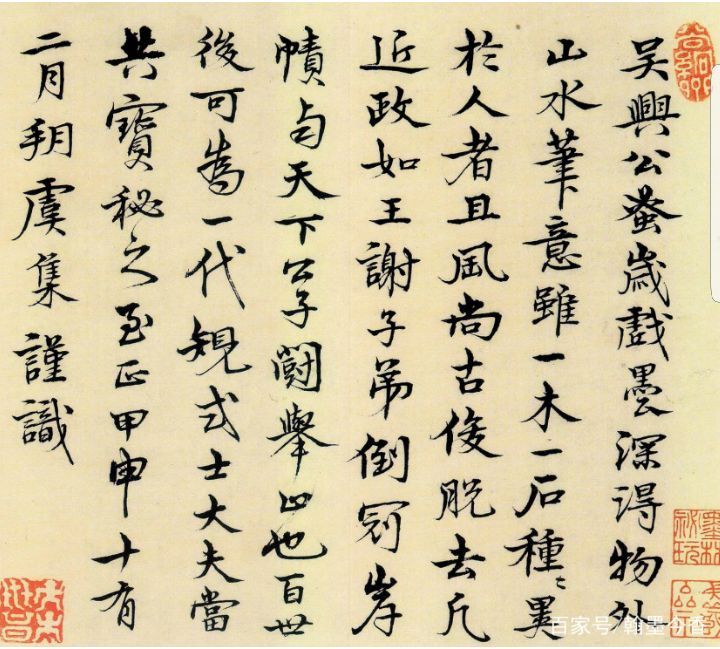 吳興公蚤歲戲墨深得物外
山水筆意雖一木一石種〻異
於人者且風尚古俊脫去凡
近政如王謝子弟倒冠岸
幘與天下公子鬪舉止也百世
後可爲一代規式士大夫當
共寶秘之至正甲申十有
二月朔虞集謹識
百家号/翰墨今香